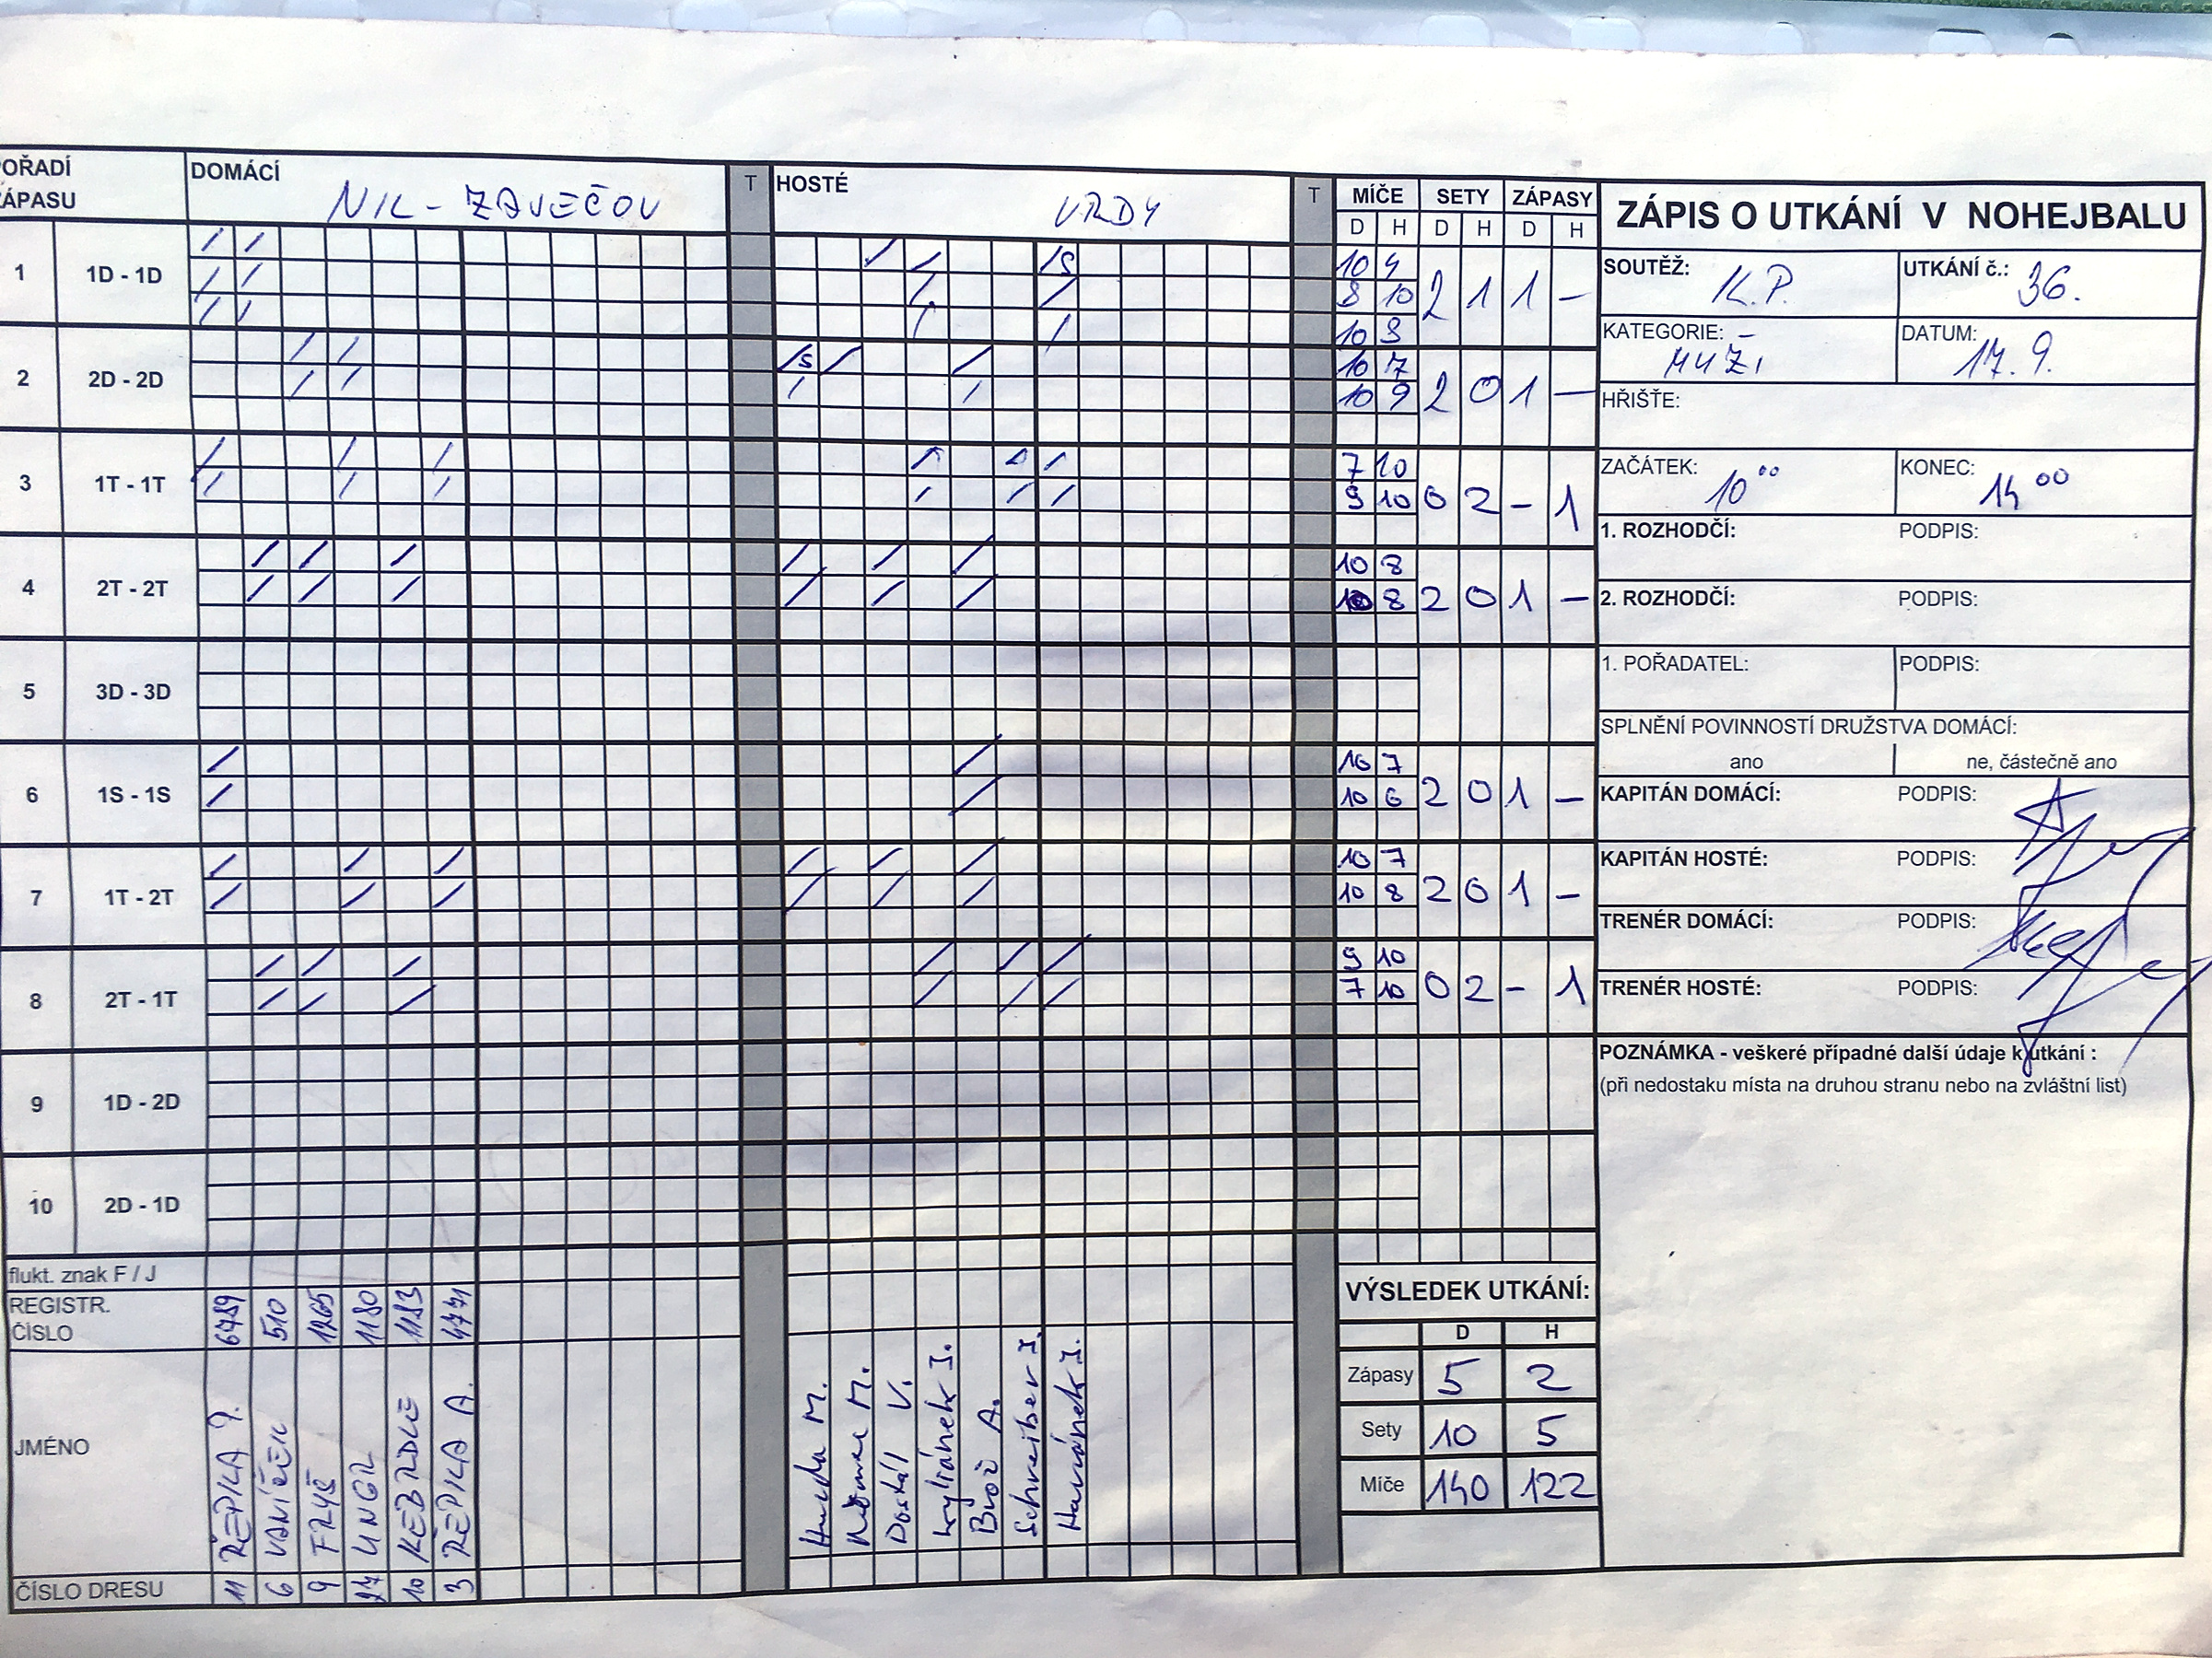 OŘADÍ
ÁPASU
DOMÁCÍ
T
HOSTÉ
VRDY
T
MÍČE SETY ZÁPASY
D H D H D H
ZÁPIS O UTKÁNÍ V NOHEJBALU
SOUTĚŽ: K.P.
UTKÁNÍ č.: 36.
KATEGORIE: MUŽI
DATUM: 17. 9.
HŘIŠTĚ:
ZAČÁTEK: 10 00
KONEC: 14 00
1. ROZHODČÍ: PODPIS:
2. ROZHODČÍ: PODPIS:
1. POŘADATEL: PODPIS:
SPLNĚNÍ POVINNOSTÍ DRUŽSTVA DOMÁCÍ:
ano ne, částečně ano
KAPITÁN DOMÁCÍ: PODPIS:
KAPITÁN HOSTÉ: PODPIS:
TRENÉR DOMÁCÍ: PODPIS:
TRENÉR HOSTÉ: PODPIS:
POZNÁMKA - veškeré případné další údaje k utkání :
(při nedostaku místa na druhou stranu nebo na zvláštní list)
1 1D - 1D
10 4
8 10
2 1 1 -
2 2D - 2D
10 7
10 9
2 0 1 -
3 1T - 1T
7 10
9 10
0 2 - 1
4 2T - 2T
10 8
10 8
2 0 1 -
5 3D - 3D
6 1S - 1S
10 7
10 6
2 0 1 -
7 1T - 2T
10 7
10 8
2 0 1 -
8 2T - 1T
9 10
7 10
0 2 - 1
9 1D - 2D
10 2D - 1D
flukt. znak F / J
REGISTR.
ČÍSLO
6789 510 1265 1180 1183 4771
JMÉNO
ŘEPKA
VANÍČEK
FRYŠ
UNGR
KEBRDLE
ŘEPKA A.
Hruda M.
Doskál V.
Kyliánek J.
Brož A.
Schreiber J.
Havránek J.
ČÍSLO DRESU
11 6 9 27 10 3
VÝSLEDEK UTKÁNÍ:
D H
Zápasy 5 2
Sety 10 5
Míče 140 122